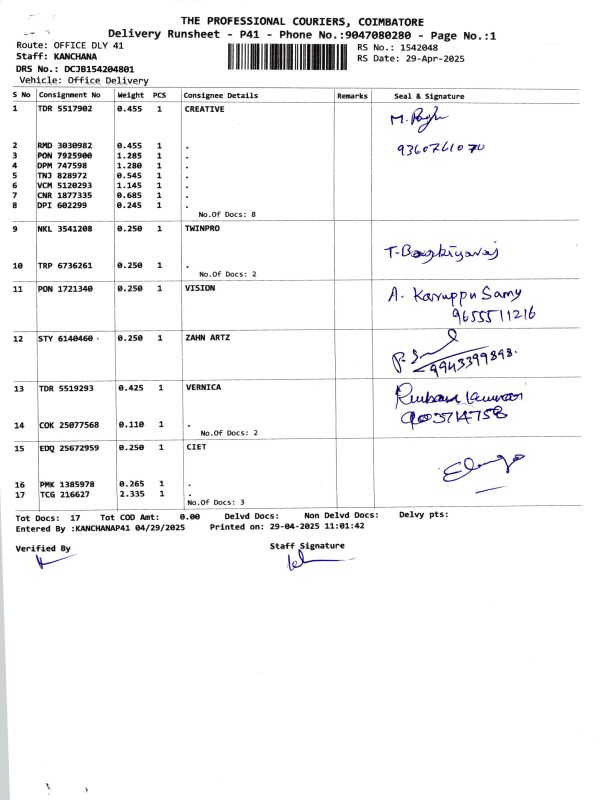 THE PROFESSIONAL COURIERS, COIMBATORE
Delivery Runsheet - P41 - Phone No.:9047080280 - Page No.:1
Route: OFFICE DLY 41
RS No.: 1542048
Staff: KANCHANA
RS Date: 29-Apr-2025
DRS No.: DCJB154204801
Vehicle: Office Delivery
S No Consignment No Weight PCS Consignee Details Remarks Seal & Signature
1 TDR 5517902 0.455 1 CREATIVE
2 RMD 3030982 0.455 1 .
9360761070
3 PON 7925900 1.285 1 .
4 DPM 747598 1.280 1 .
5 TNJ 828972 0.545 1 .
6 VCM 5120293 1.145 1 .
7 CNR 1877335 0.685 1 .
8 DPI 602299 0.245 1 .
No.Of Docs: 8
9 NKL 3541208 0.250 1 TWINPRO
10 TRP 6736261 0.250 1 .
No.Of Docs: 2
11 PON 1721340 0.250 1 VISION
A. Karuppu Samy
9655511216
12 STY 6140460 . 0.250 1 ZAHN ARTZ
9943399898.
13 TDR 5519293 0.425 1 VERNICA
14 COK 25077568 0.110 1 .
No.Of Docs: 2
15 EDQ 25672959 0.250 1 CIET
16 PMK 1385978 0.265 1 .
17 TCG 216627 2.335 1 .
No.Of Docs: 3
Tot Docs: 17 Tot COD Amt: 0.00 Delvd Docs: Non Delvd Docs: Delvy pts:
Entered By :KANCHANAP41 04/29/2025 Printed on: 29-04-2025 11:01:42
Verified By
Staff Signature